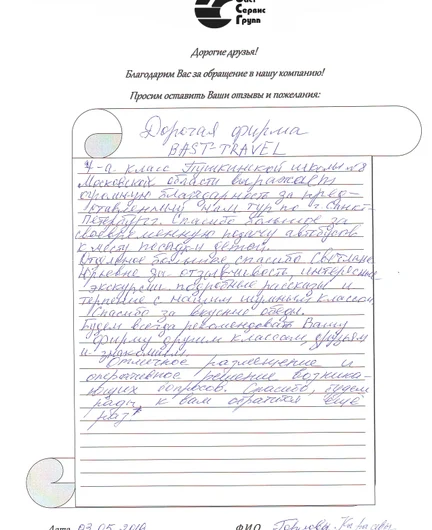 Васт
Сервис
Групп
Дорогие друзья!
Благодарим Вас за обращение в нашу компанию!
Просим оставить Ваши отзывы и пожелания:
Дорогая фирма
BAST-TRAVEL
7-а класс Пушкинской школы №8
Московской области выражает
огромную благодарность за предо-
ставленный нам тур по г. Санкт-
Петербург. Спасибо большое за
своевременную подачу автобусов
к месту посадки детей.
Отдельное большое спасибо Светлане
Юрьевне за отзывчивость, интересные
экскурсии подробные рассказы и
терпение с нашим шумным классом
Спасибо за вкусные обеды.
Будем всегда рекомендовать Вашу
фирму другим классам, друзьям
и знакомым.
Отличное размещение и
оперативное решение возника-
ющих вопросов. Спасибо, будем
рады к вам обратится ещё
раз
Дата 03.05.2016 Ф.И.О.